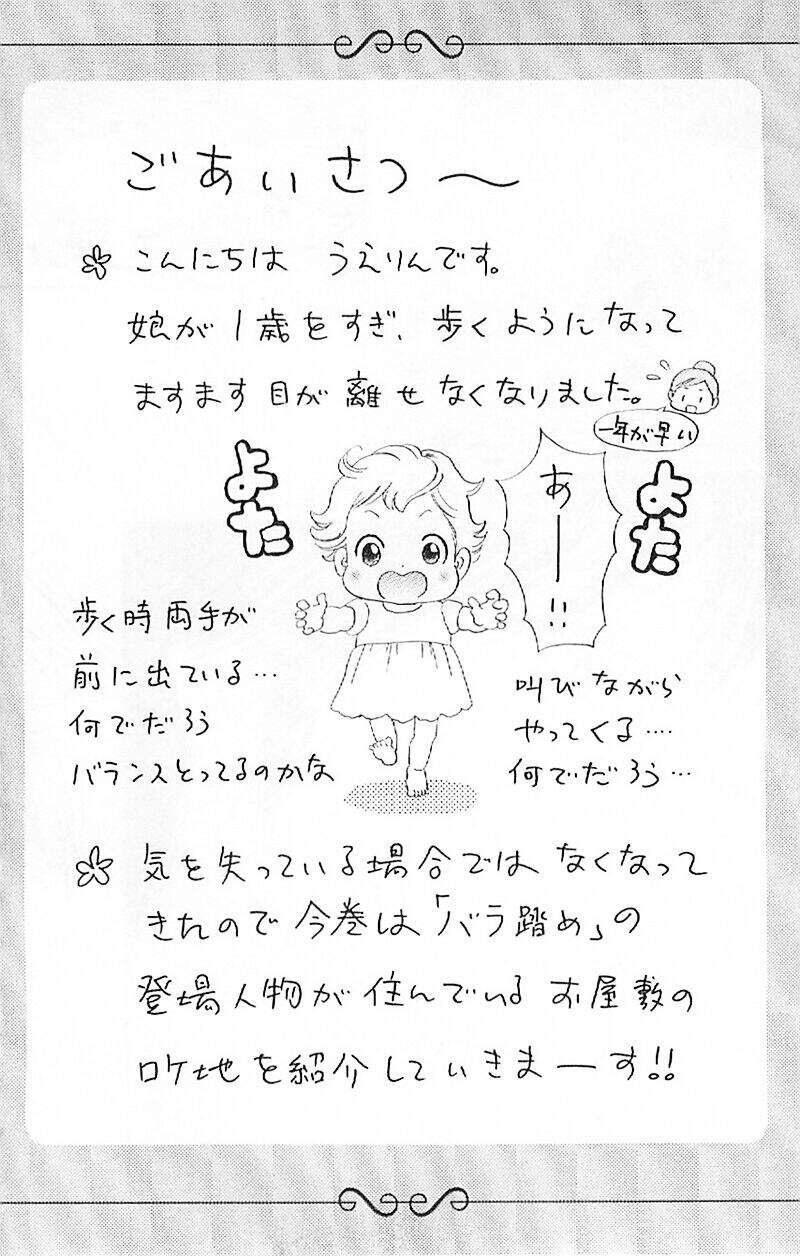 ごあいさつ〜
こんにちは うえりんです。
娘が1歳をすぎ、歩くようになって
ますます目が離せなくなりました。
一年が早い
よた
あー!!
よた
歩く時両手が
前に出ている…
何でだろう
バランスとってるのかな
叫びながら
やってくる‥‥
何でだろう…
気を失っている場合ではなくなって
きたので今巻は「バラ踏め」の
登場人物が住んでいるお屋敷の
ロケ地を紹介していきまーす!!